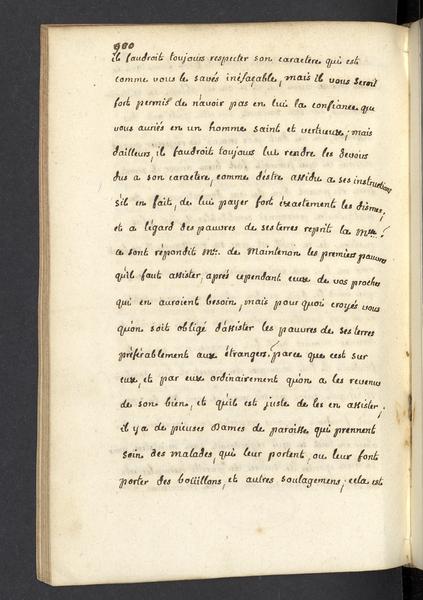 900
il faudroit toujours respecter son caractere qui est
comme vous le savés inéfaçable, mais il vous seroit
fort permis de n'avoir pas en lui la confiance que
vous auriés en un homme saint et vertueux; mais
d'ailleurs, il faudroit toujours lui rendre les devoirs
dus a son caractere, comme d'être assidu a ses instructions
s'il en fait, de lui payer fort éxactement les dîmes;
et a l'égard des pauvres de ses terres reprit la Mtte ?
ce sont répondit Me. de Maintenon les premiers pauvres
qu'il faut assister, aprés cependant ceux de vos proches
qui en auroient besoin, mais pour quoi croyés vous
qu'on soit obligé d'assister les pauvres de ses terres
préférablement aux étrangers? parce que c'est sur
eux, et par eux ordinairement qu'on a les revenus
de son bien, et qu'il est juste de les en assister;
il y a de pieuses Dames de paroisse qui prennent
soin des malades, qui leur portent, ou leur font
porter des boüillons, et autres soulagemens; cela est